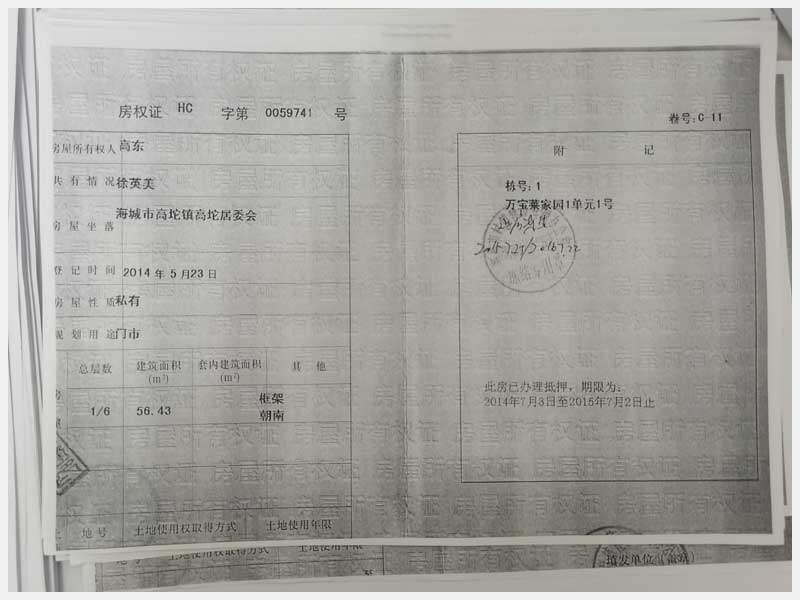 房权证 HC 字第 0059741 号
房屋所有权人 高东
共有情况 徐英美
房屋坐落 海城市高坨镇高坨居委会
登记时间 2014 年 5 月 23 日
房屋性质 私有
规划用途 门市
总层数 建筑面积(m²) 套内建筑面积(m²) 其他
1/6 56.43 框架
朝南
地号 土地使用权取得方式 土地使用年限
卷号:C-11
附 记
栋号:1
万宝莱家园1单元1号
此房已办理抵押，期限为:
2014年7月3日至2015年7月2日止
地号 土地使用权取得方式 土地使用年限
填发单位